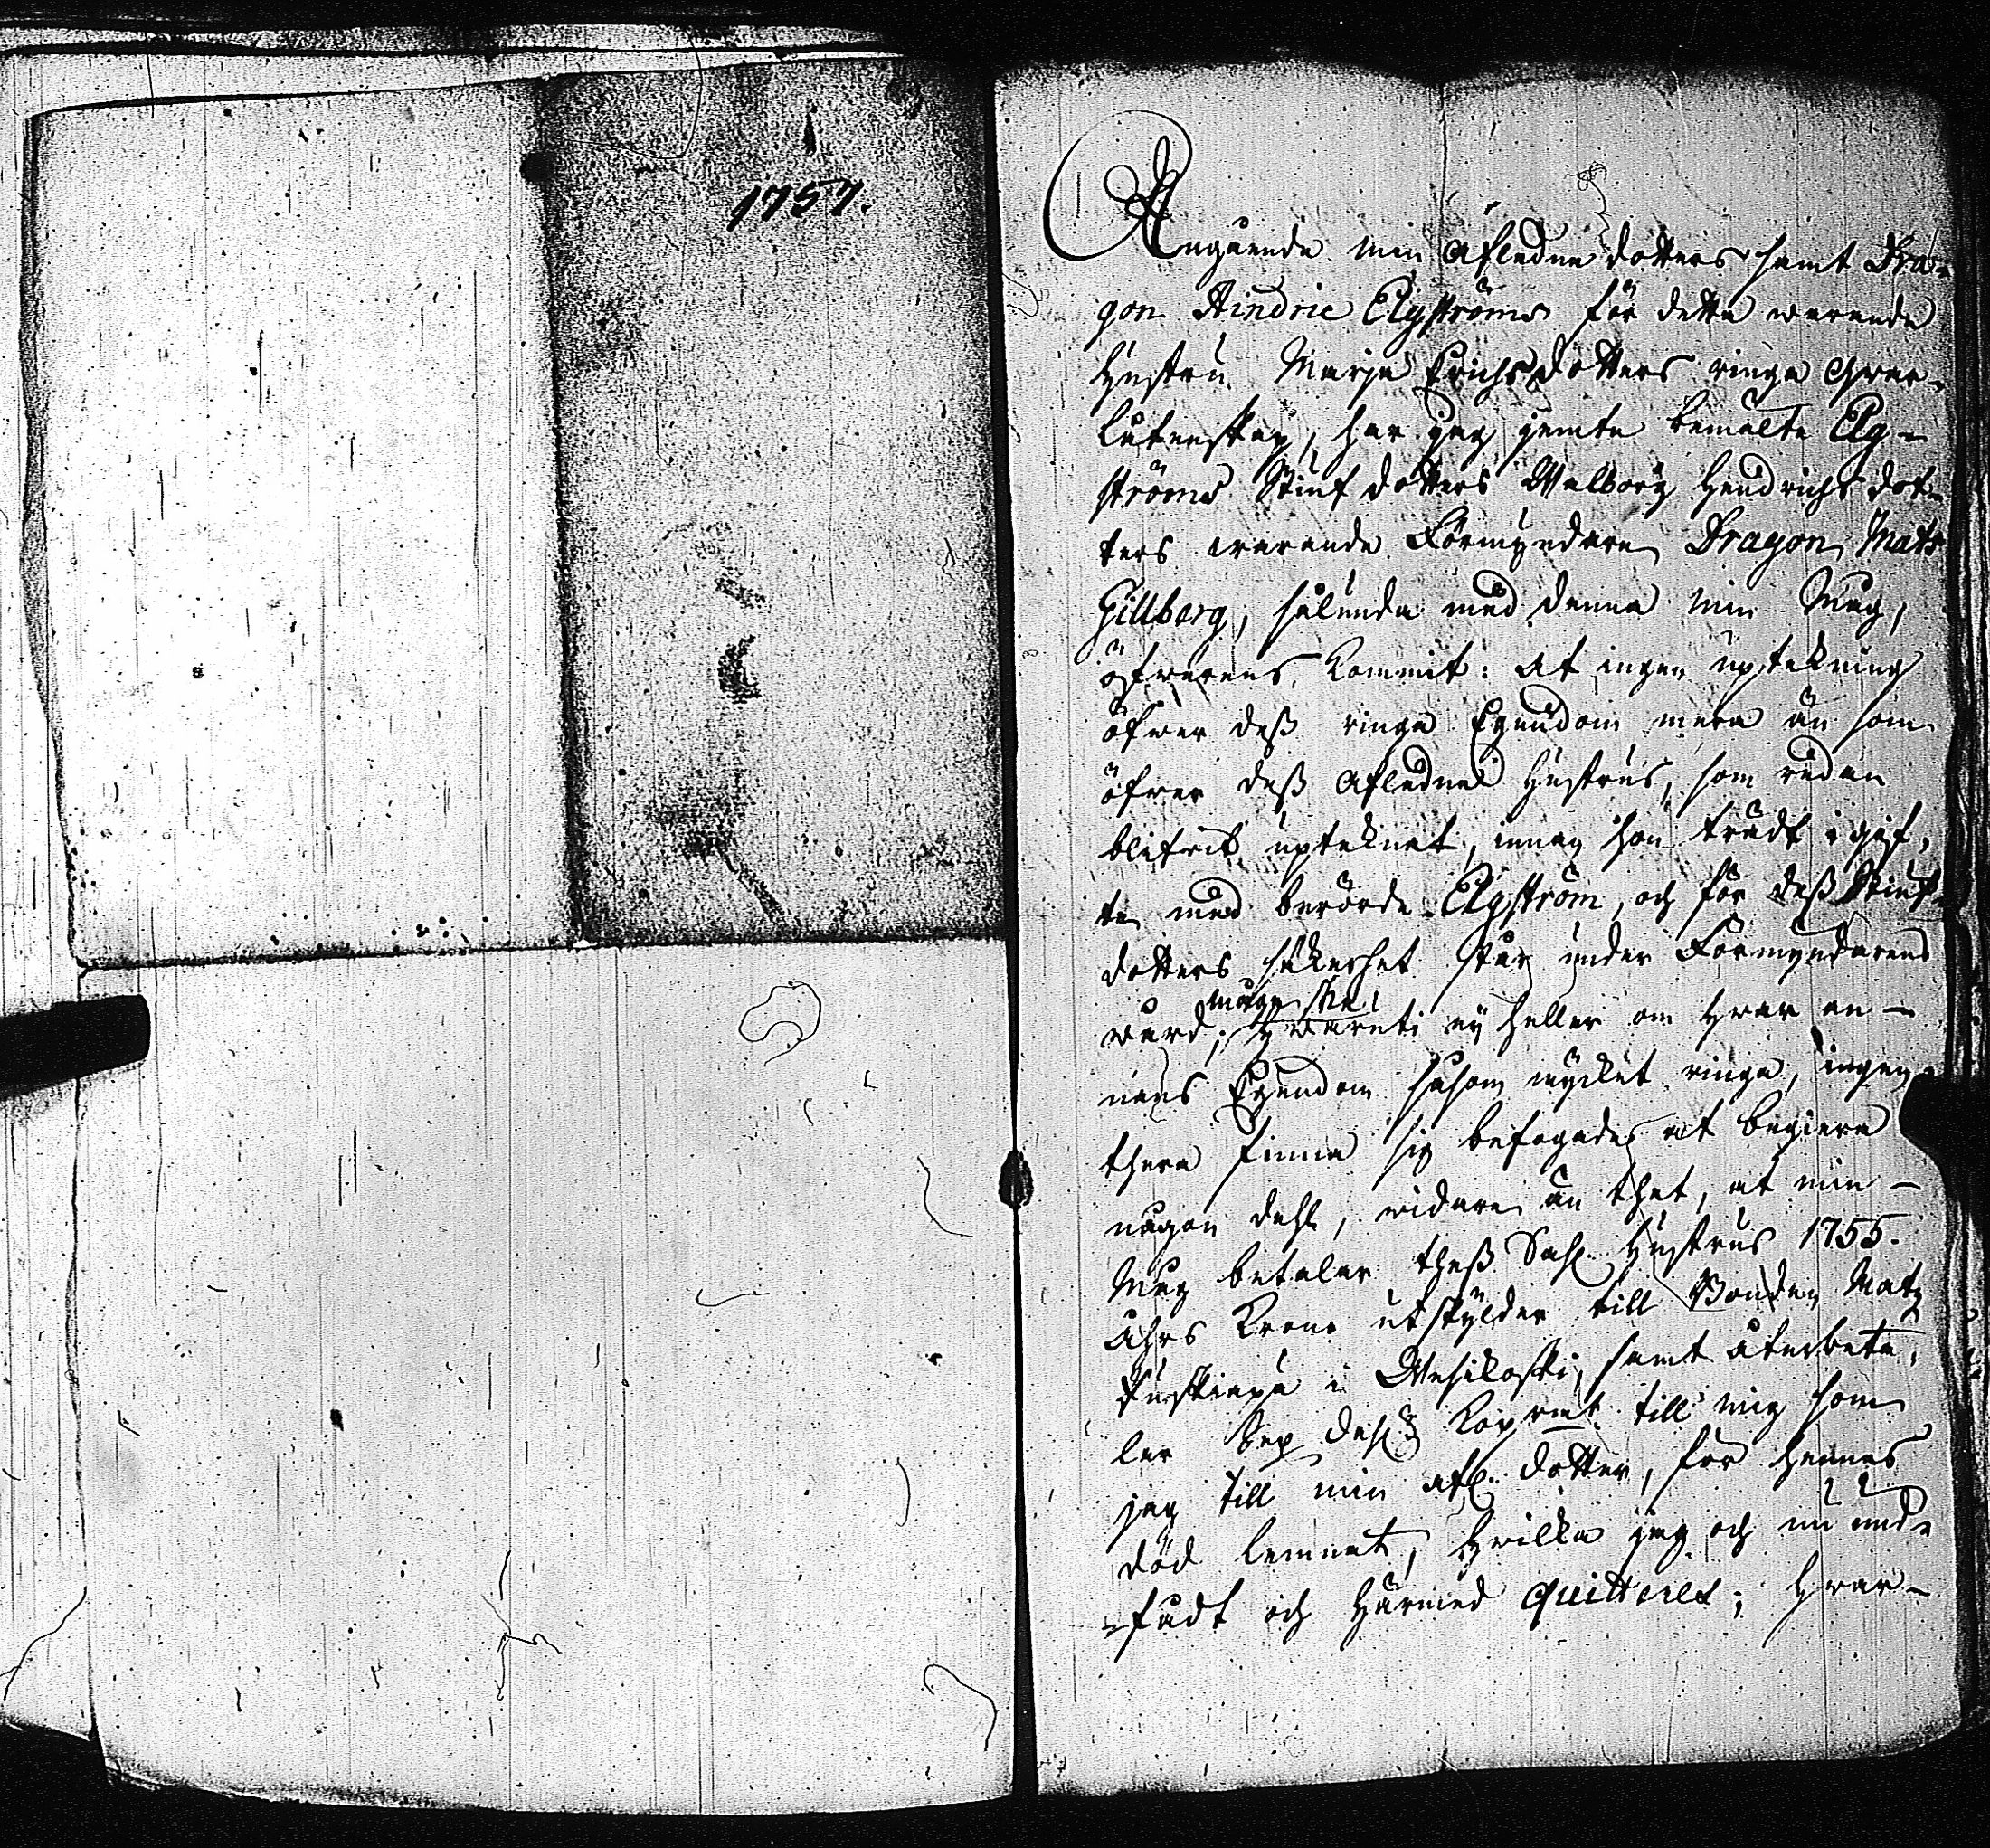 1757.
Angående min Afledne dotters samt Dra-
gon Hindric Elgströms för detta warande
Hustru Marja Erichsdotters ringa qwar-
låtenskap, har jag jemte bemälte Elg-
ströms Stiuf dotters Walborg Hendrichs dot-
ters warande Förmyndare Dragon Mats
Gillberg, sålunda med denna min Måg,
öfwerens kommit: at ingen uptekning
öfwer dess ringa Egendom mera än som
öfwer dess Afledne Hustrus, som redan
blifwit upteknat, innan hon trädt i gif-
te med berörde Elgström, och för dess Stiuf-
dotters säkerhet står under Förmyndarens
wård; hwaruti ej heller om hwar an-
måge ske,
nans Egendom såsom mycket ringa, ingen-
thera finna sig befogade at begiera
någon dehl, widare än thet, at min
Måg betalar thess Sahl. Hustrus 1755.
åhrs Krono utskylder till Bonden Matz
i Wesikoski, samt återbeta-
ler Sex dahl. Kopr mt till mig som
jag till min afl. dotter, för hennes
död lemnat, hwilka jag och nu und-
fådt och härmed quitteres; hwar-